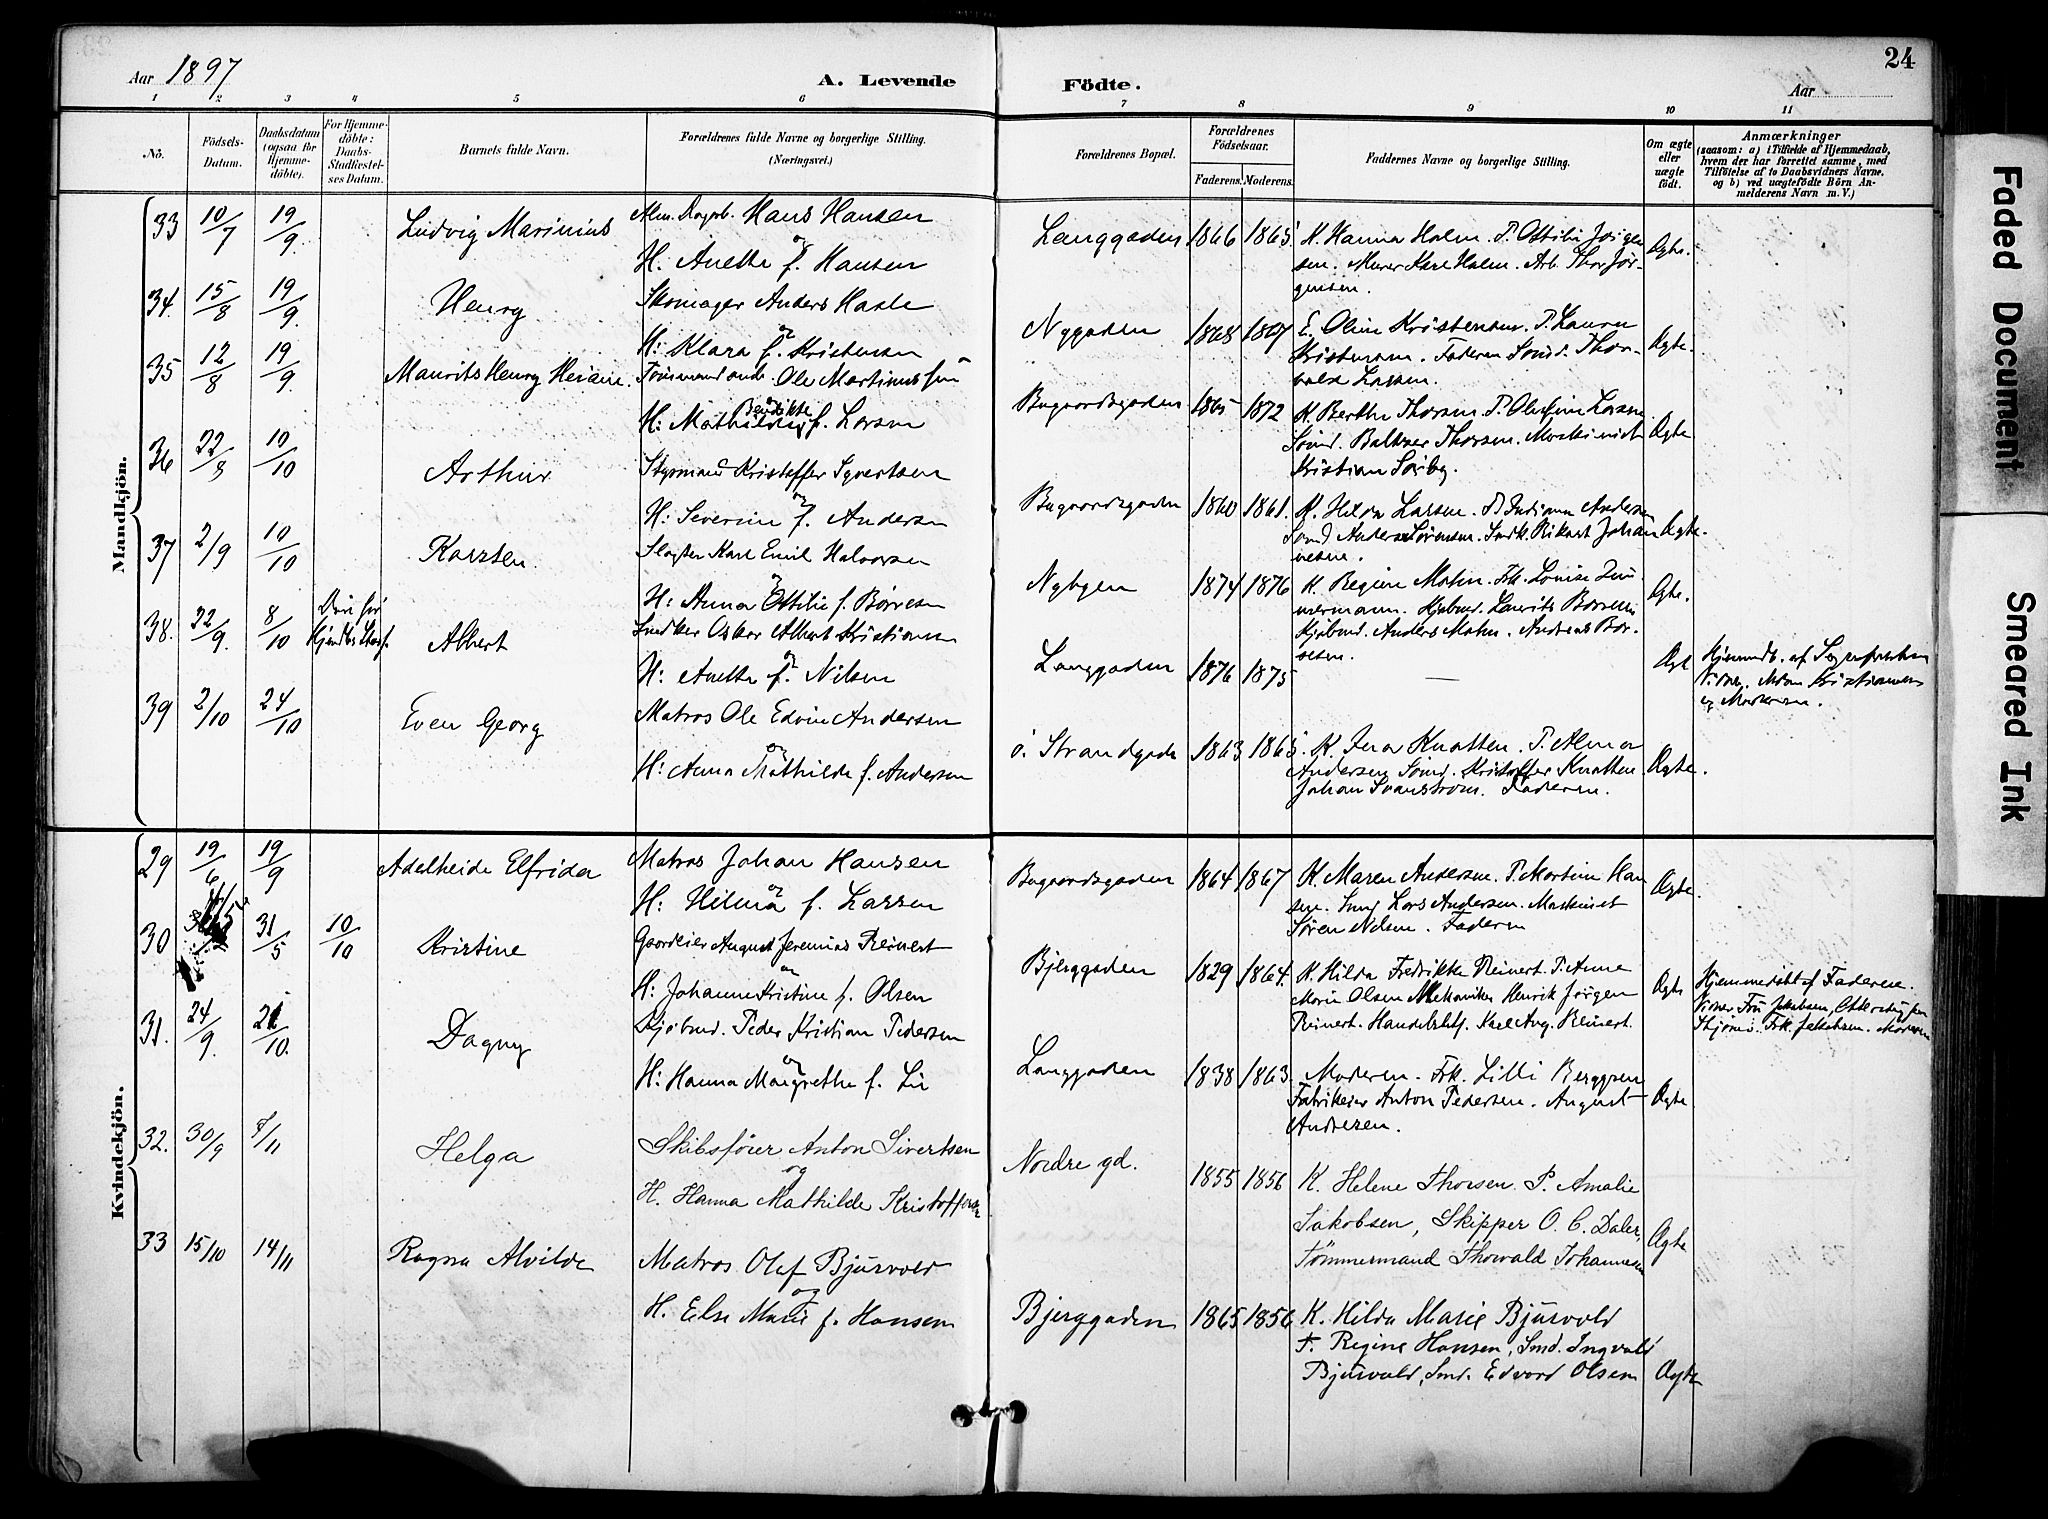 Aar 1897
A. Levende
Födte.
Aar
24
1 2 3 4 5 6 7 8 9 10 11
No.
Födsels-Datum.
Daabsdatum (ogsaa for Hjemme-döbte).
For Hjemme-döbte: Daabs-Stadfæstel-ses Datum.
Barnets fulde Navn.
Forældrenes fulde Navne og borgerlige Stilling.
(Næringsvei.)
Forældrenes Bopæl.
Forældrenes Födselsaar.
Faderens. Moderens.
Faddernes Navne og borgerlige Stilling.
Om ægte eller uægte födt.
Anmærkninger
(saasom: a) i Tilfælde af Hjemmedaab, hvem der har forrettet samme, med Tilföielse af to Daabsvidners Navne. og b) ved uægtefödte Börn An-melderens Navn m. V.)
Mandkjön.
33 10/7 19/9 Ludvig Marinius Hans Hansen
og
H. Anette f. Hansen
Langgaden 1866 1865 K. Hanna Holm. P. Ottilie Jørgen
sen. Murer Karl Holm. Arb. Thor Jør-
gensen.
Ægte.
34. 15/8 19/9 Henry Skomager Anders Hasle
og
H: Klara f. Kristensen
Nygaden 1868 1867 E. Oline Kristensen. P. Laura
Kristensen. Faderen Sømd. Thor-
vald Larsen.
Ægte.
35 12/8 19/9 Maurits Henry Ole Martinussen
Bendikte og
H: Mathilde f. Larsen
1865 1872 K. Berthe Thorsen. P. Olefine Larsen
Sømd. Baltzer Thorsen. Maskinist
Kristian Sørby.
Ægte
36 22/8 10/10 Arthur Styrmand Kristoffer Syvertsen
og
H: Severine f. Andersen
1860 1861. K. Hilda Larsen. P. Andersen
Sømd Anders Sørensen. Johan
nesen.
Ægte.
37 2/9 10/10 Karsten. Slagter Karl Emil Halvorsen
og
H: Anna Ottilie f. Børresen
Nybyen 1874 1876 K. Regine Mohn. Frk. Louise Zim
mermann. Kjøbmd. Laurits Børresen
Kjøbmd. Anders Mohn. Andreas Bør-
resen.
Ægte.
38. 22/9. 8/10 Albert Oskar Albert Kristiansen
og
H: Anette f. Nilsen
Langgaden 1876 1875 — Ægte Hjemmdb. af
Kristiansen
og Moderen.
39 2/10 24/10 Even Georg Matros Ole Edvin Andersen
og
H: Anna Mathilde f. Andersen
ö. Strandgade 1863 1865. K. Jena Knatten. P. Alma
Andersen Sömd. Kristoffer Knatten.
Johan Svanström. Faderen.
Ægte.
Kvindekjön.
29 19/6 19/9 Adelheide Elfrida Matros Johan Hansen
og
H: Hilma f. Larsen
1864 1867 K. Maren Andersen. P. Martine Han
sen. Lars Andersen. Maskinist
Søren Nilsen. Faderen
Ægte.
30 31/5 10/10 Kristine Gaardeier August Jeremias Reinert
og
H: Johanne Kristine f. Olsen
Bjerggaden 1829 1864. K. Hilda Fredrikke Reinert. P. Anne
Marie Olsen Mekaniker Henrik Jørgen
Reinert. Handelsbtj. Karl Aug. Reinert.
Ægte Hjemmedøbt af Faderen.
Vidner Fru Jakobsen,
Frk. Jakobsen. Moderen
31. 24/9. 10. Dagny Kjøbmd. Peder Kristian Pedersen
og
H: Hanna Margrethe f. Lie
Langgaden 1838 1863. Moderen. Frk. Lilli Berggren
Fabrikeier Anton Pedersen. August
Andresen.
Ægte.
32. 30/9 7/11 Helga Skibsförer Anton Sivertsen
og
H. Hanna Mathilde Kristoffersen
Nordre gd. 1855 1856 K. Helene Thorsen P. Amalie
Jakobsen, Skipper O. C. Daler,
Tömmermand Thorvald Johannesen
Ægte
33 15/10 14/11 Ragna Alvilde Matros Olaf Bjurvold
og
H. Else Marie f. Hansen
Bjerggaden 1865 1856 K. Hilda Marie Bjurvold
F. Regine Hansen, Smd. Ingvald
Bjurvold, Smd. Edvard Olsen
Ægte
Faded Document
Smeared Ink